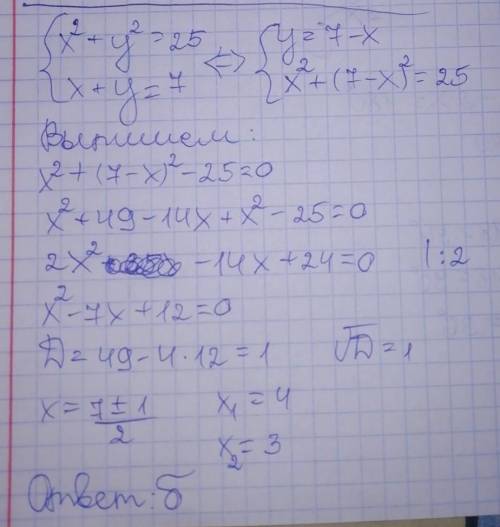 {x² + y² = 25 ⇔ {y = 7 - x
{x + y = 7 {x² + (7 - x)² = 25
Выпишем:
x² + (7 - x)² - 25 = 0
x² + 49 - 14x + x² - 25 = 0
2x² - 14x + 24 = 0 | : 2
x² - 7x + 12 = 0
D = 49 - 4 · 12 = 1 √D = 1
x = (7 ± 1)/2 x₁ = 4
x₂ = 3
Ответ: б